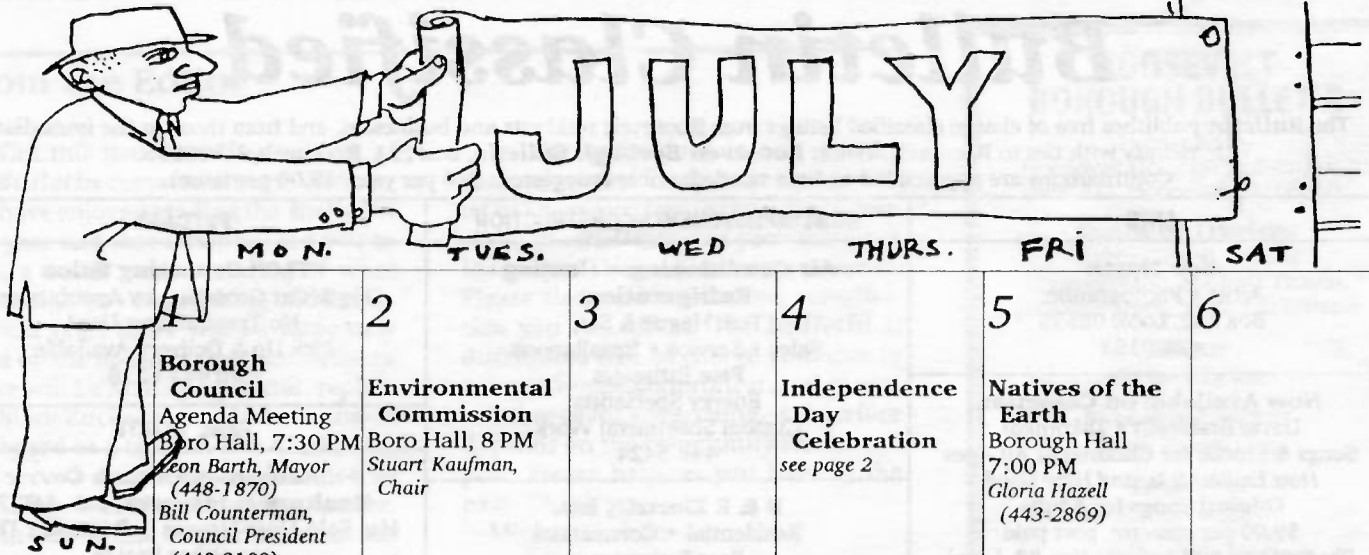 JULY
SUN.
MIN.
TUES.
WED
THURS.
FRI
SAT
1
Borough
Council
Agenda Meeting
Boro Hall, 7:30 PM
Leon Barth, Mayor
(448-1870)
Bill Counterman,
Council President
2
Environmental
Commission
Boro Hall, 8 PM
Stuart Kaufman,
Chair
3
4
Independence
Day
Celebration
see page 2
5
Natives of the
Earth
Borough Hall
7:00 PM
Gloria Hazell
(443-2869)
6